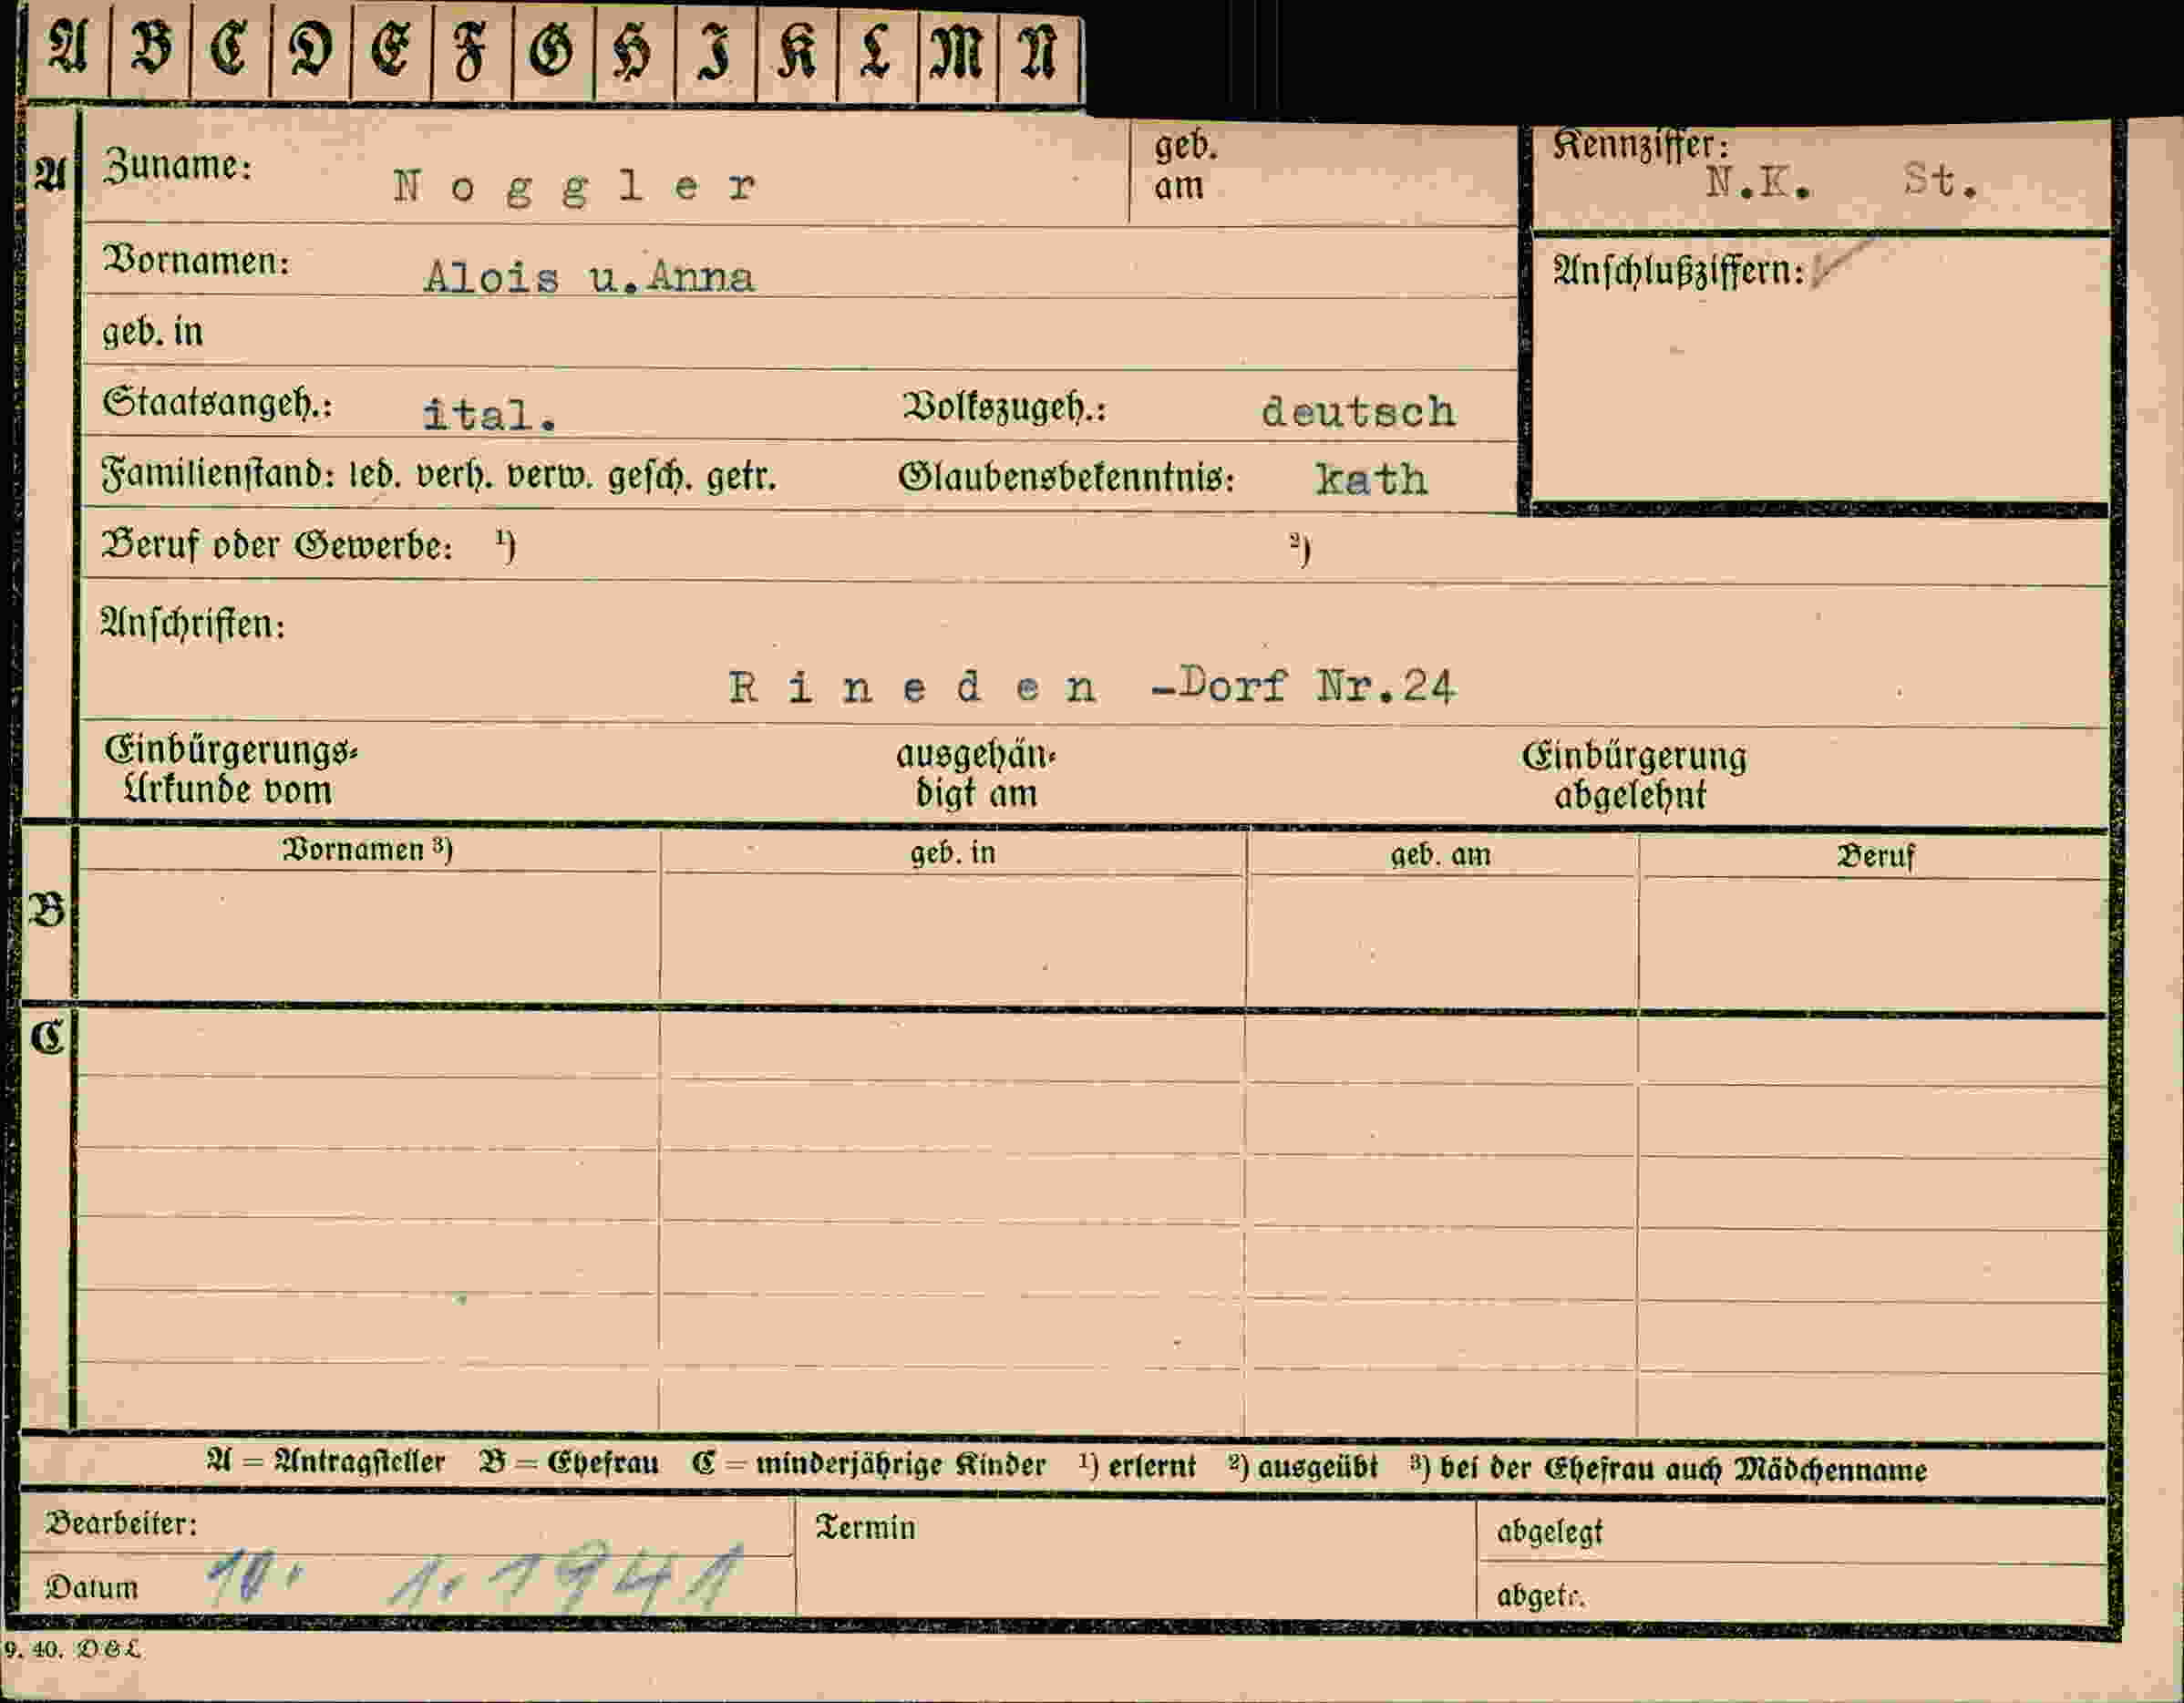 A B C D E F G H I K L M N
A Zuname: Noggler geb. am Kennziffer: N.K. St.
Vornamen: Alois u.Anna Anschlußziffern:
geb. in
Staatsangeh.: ital. Volkszugeh.: deutsch
Familienstand: led. verh. verw. gesch. getr. Glaubensbekenntnis: kath
Beruf oder Gewerbe: ¹) ²)
Anschriften:
Rineden -Dorf Nr.24
Einbürgerungs- ausgehän- Einbürgerung
Urkunde vom digt am abgelehnt
Vornamen ³) geb. in geb. am Beruf
B
C
A = Antragsteller B = Ehefrau C = minderjährige Kinder ¹) erlernt ²) ausgeübt ³) bei der Ehefrau auch Mädchenname
Bearbeiter: Termin abgelegt
Datum 10. 1. 1941 abgetr.
9. 40.